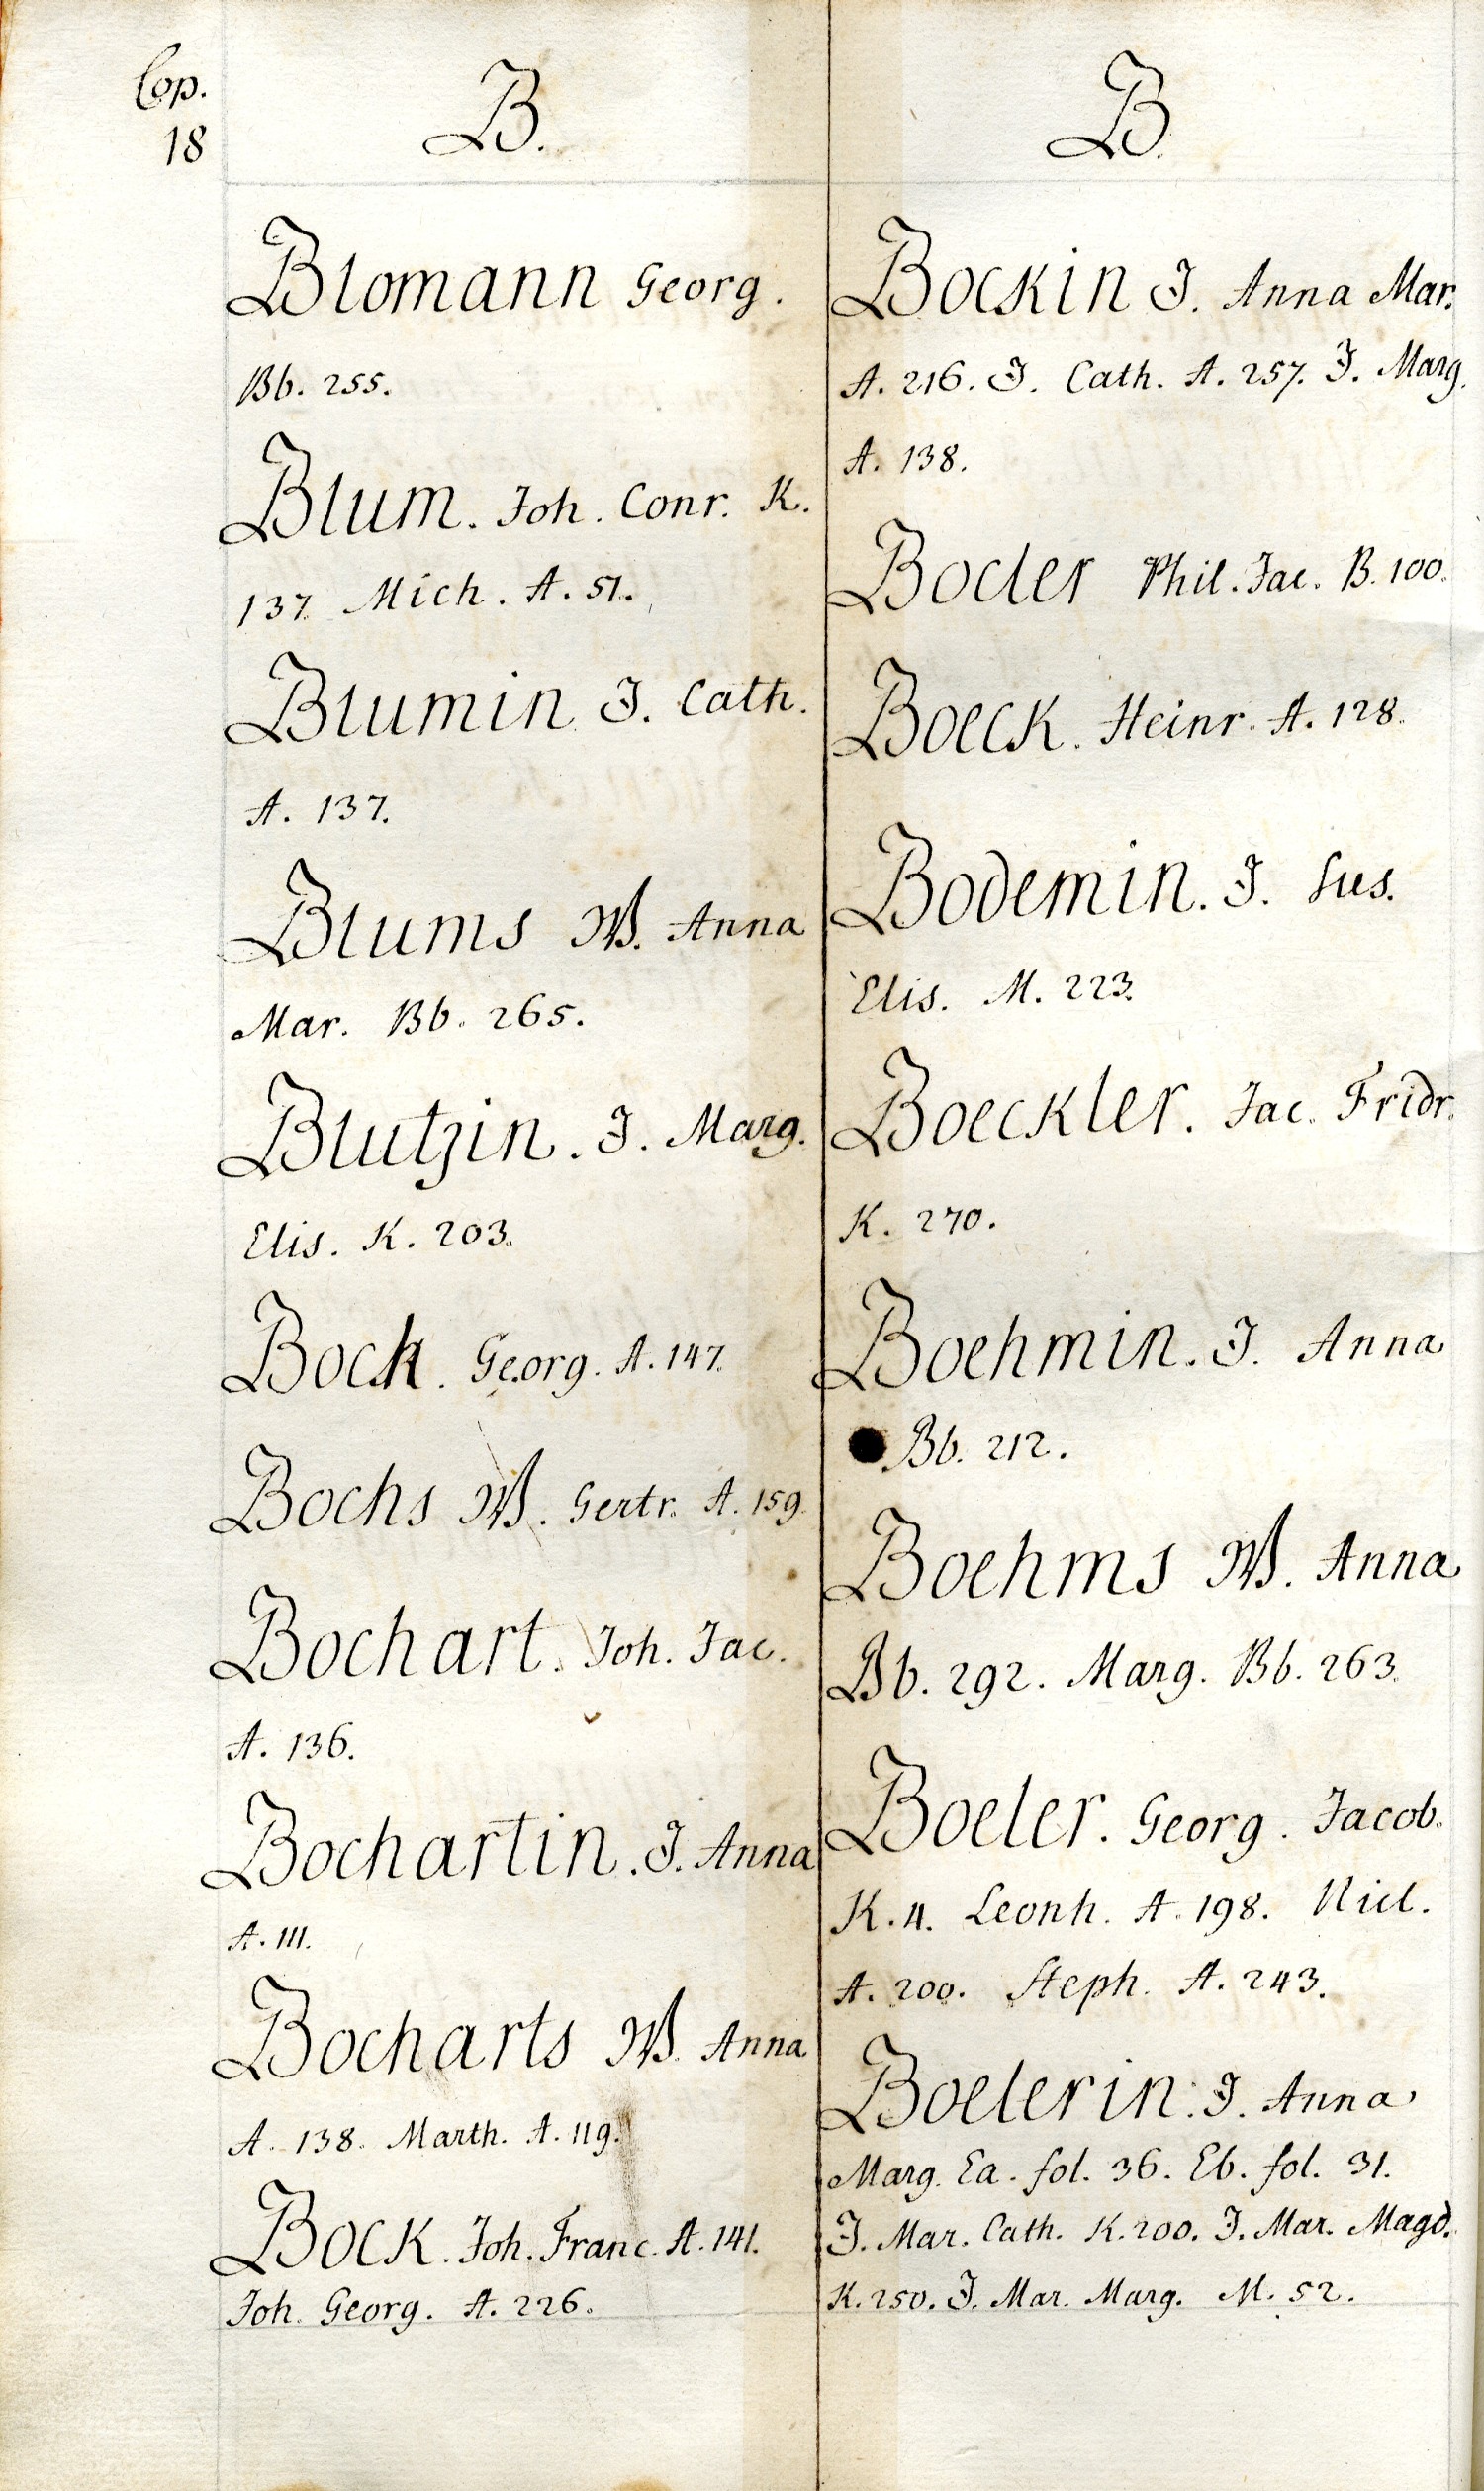 Cop.
18
B.
Blomann Georg.
Bb. 255.
Blum. Joh. Conr. K.
137. Mich. A. 51.
Blumin J. Cath.
A. 137.
Blums W. Anna
Mar. Bb. 265.
Blutzin. J. Marg.
Elis. K. 203.
Bock. Georg. A. 147.
Bochs W. Gertr. A. 159.
Bochart. Joh. Jac.
A. 136.
Bochartin. J. Anna
A. 111.
Bocharts W. Anna
A. 138. Marth. A. 119.
Bock. Joh. Franc. A. 141.
Joh. Georg. A. 226.
B.
Bockin J. Anna Mar.
A. 216. J. Cath. A. 257. J. Marg.
A. 138.
Bocler Phil. Jac. B. 100.
Boeck. Heinr. A. 128.
Bodemin. J. Sus.
Elis. M. 223.
Boeckler. Jac. Fridr.
K. 270.
Boehmin. J. Anna
Bb. 212.
Boehms W. Anna
Bb. 292. Marg. Bb. 263.
Boeler. Georg. Jacob.
K. 4. Leonh. A. 198. Nicl.
A. 200. Steph. A. 243.
Boelerin. J. Anna
Marg. Ea. fol. 36. Eb. fol. 31.
J. Mar. Cath. K. 200. J. Mar. Magd.
K. 250. J. Mar. Marg. M. 52.